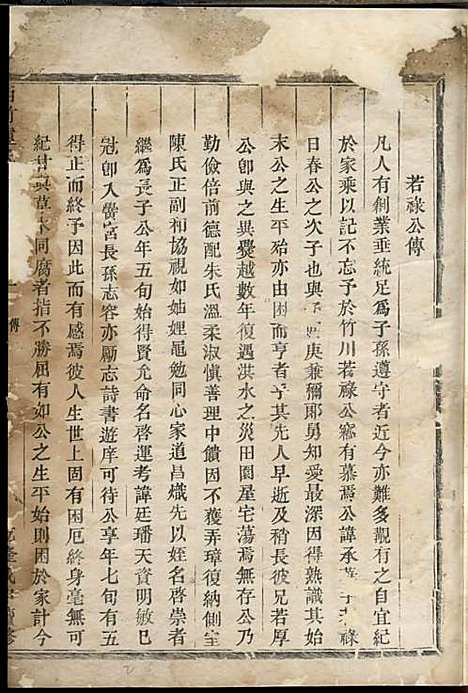 若祿公傳
凡人有創業垂統足爲子孫遵守者近今亦難多覯有之自宜紀
於家乘以記不忘予於竹川若祿公竊有慕焉公諱承子若祿
日春公之次子也與庚兼彌鄖舅知愛最深因得熟識其始
末公之生平殆亦由困而亨者其先人早逝及稍長彼兄若厚
公卽與之異爨越數年復遇洪水之災田園屋宅蕩焉無存公乃
勤儉倍前德配朱氏溫柔淑慎善理中饋因不獲弄璋復納側室
陳氏正副相協視如姊娌黽勉同心家道昌熾先以姪名啓崇者
繼爲長子公年五旬始得賢允命名啓運考諱廷璠天資明敏已
冠卽入黌宮長孫志容亦勵志詩書遊庠可待公享年七旬有五
得正而終予因此而有感焉彼人生世上固有困厄終身毫無可
紀甘與草木同腐者指不勝屈有如公之生平始則困於家計今
傳